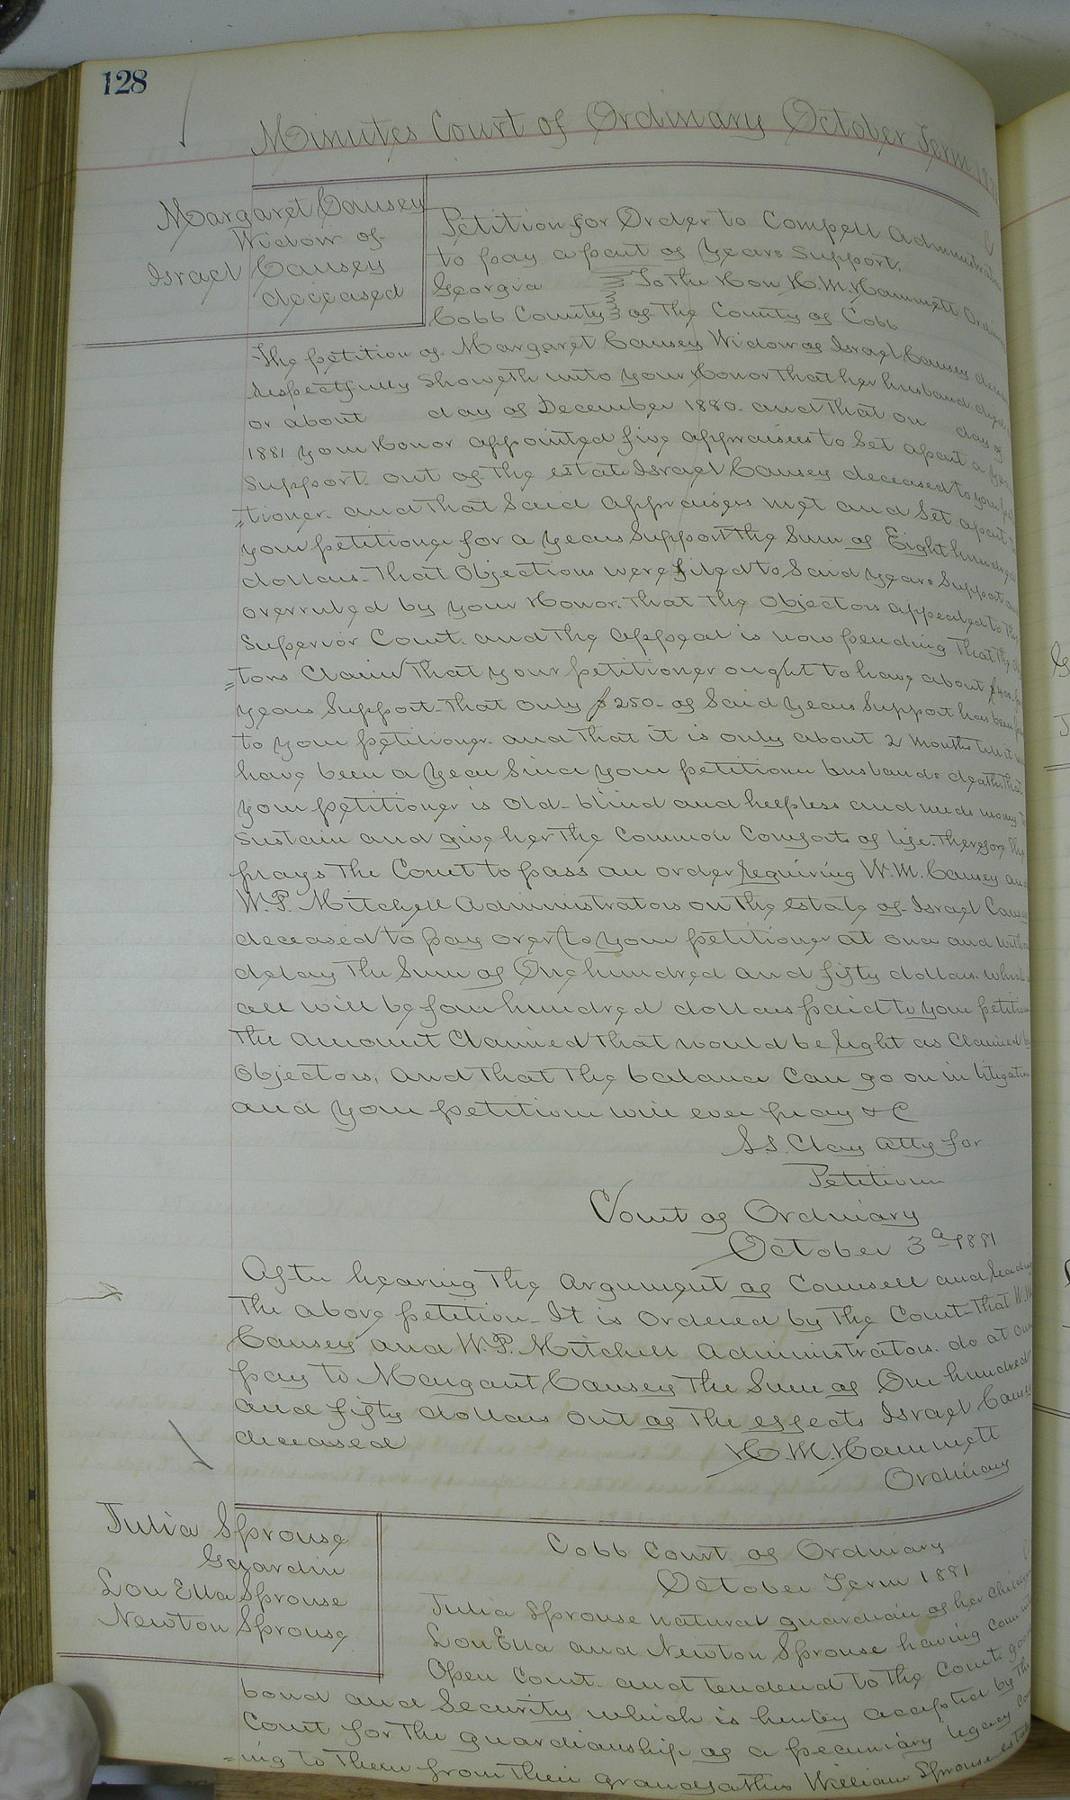 128
Minutes Court of Ordinary October Term
Margaret Causey
Widow of
Israel Causey
deceased
Petition for Order to Compell Administrators
to pay apart of Years Support.
Georgia To the Hon H. M. Hammett Ordinary
Cobb County of The County of Cobb
The petition of Margaret Causey Widow of Israel Causey
respectfully Showeth unto your Honor That her husband died
or about day of December 1880. and That on day of
1881 your Honor appointed five appraisers to Set apart a
Support out of The estate Israel Causey deceased to your
=tioner. and That Said appraisers met and Set apart
your petitioner for a Years Support The Sum of Eight hundred
dollars. That Objections were filed to Said Years Support
overruled by your Honor. That The Objectors appealed to The
Superior Court. and The Appeal is now pending That The
=tors Claim That your petitioner ought to have about
Years Support. That Only $250. of Said Years Support has been
to your petitioner. and That it is only about 2 months till it
have been a Year Since your petitioner husbands death. That
your petitioner is Old blind and helpless and needs money
Sustain and give her The Common Comforts of life. Therefore She
prays The Court to pass an order requiring W. M. Causey and
W. P. Mitchell Administrators on The estate of Israel Causey
deceased to pay over to your petitioner at once and without
delay The Sum of One hundred and fifty dollars. which
all will be four hundred dollars paid to your petitioner
The amount Claimed That would be right as Claimed by
Objectors, And That The balance Can go on in litigation
and your petitioner will ever pray & C
S. S. Clay Atty for
Petitioner
Court of Ordinary
October 3d 1881
After hearing The Argument of Counsell and reading
The above petition. It is Ordered by The Court That W. M.
Causey and W. P. Mitchell Administrators. do at once
pay to Margaret Causey The Sum of One hundred
and fifty dollars out of The effects Israel Causey
deceased
H. M. Hammett
Ordinary
Julia Sprouse
Guardin
Lou Ella Sprouse
Newton Sprouse
Cobb Court of Ordinary
October Term 1881
Julia Sprouse natural guardian of her Children
Lou Ella and Newton Sprouse having Come
Open Court. and tendered to The Court good
bond and Security which is hereby accepted by The
Court for The guardianship of a pecuniary legacy
=ing to Them from Their grandfather William Sprouse